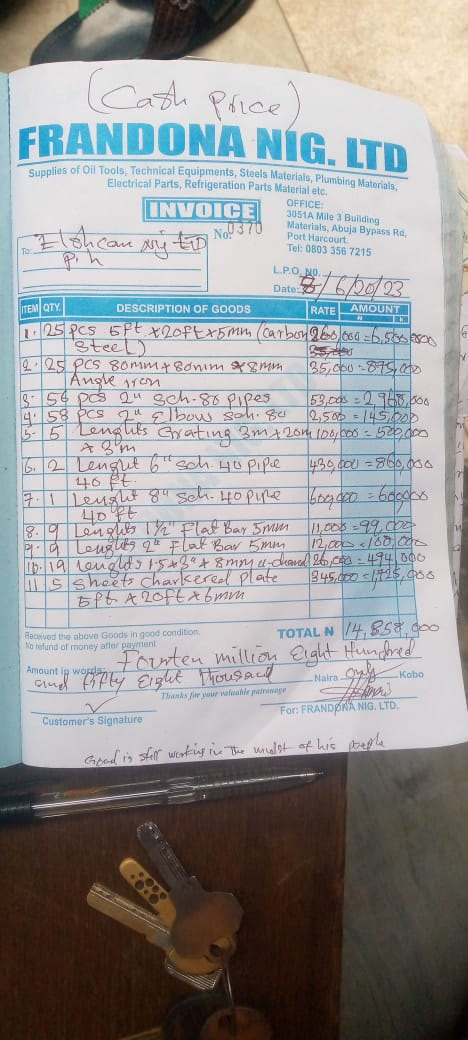 (Cash Price)
FRANDONA NIG. LTD
Supplies of Oil Tools, Technical Equipments, Steels Materials, Plumbing Materials,
Electrical Parts, Refrigeration Parts Material etc.
INVOICE
No: 0370
OFFICE:
3051A Mile 3 Building
Materials, Abuja Bypass Rd,
Port Harcourt.
Tel: 0803 356 7215
To: Elshcan Nig LTD
P.h
L.P.O. NO.
Date: /6/2023
ITEM QTY. DESCRIPTION OF GOODS RATE AMOUNT
N K
1. 25 pcs 5ft x 20ft x 5mm (Carbon 260,000 = 6,500,000
Steel)
2. 25 pcs 80mm x 80mm x 8mm 35,000 = 875,000
Angle iron
3. 56 pcs 2" Sch. 80 pipes 53,000 = 2,968,000
4. 58 pcs 2" Elbow Sch. 80 2,500 = 145,000
5. 5 Lenghts Grating 3m x 20m 100,000 = 500,000
x 3m
6. 2 Lenght 6" Sch. 40 pipe 430,000 = 860,000
40 ft.
7. 1 Lenght 8" Sch. 40 pipe 600,000 = 600,000
40 ft
8. 9 Lenghts 1½" Flat Bar 5mm 11,000 = 99,000
9. 9 Lenghts 2" Flat Bar 5mm 12,000 = 108,000
10. 19 Lenghts 1.5 x 3" x 8mm u-chanel 26,000 = 494,000
11 5 Sheets Charkered plate 345,000 = 1,725,000
5ft x 20ft x 6mm
Received the above Goods in good condition.
No refund of money after payment
TOTAL N 14,858,000
Amount in words: Fourten million Eight Hundred
and fifty Eight Thousand Naira only Kobo
Thanks for your valuable patronage
Customer's Signature
For: FRANDONA NIG. LTD.
Good is still working in The midst of his people